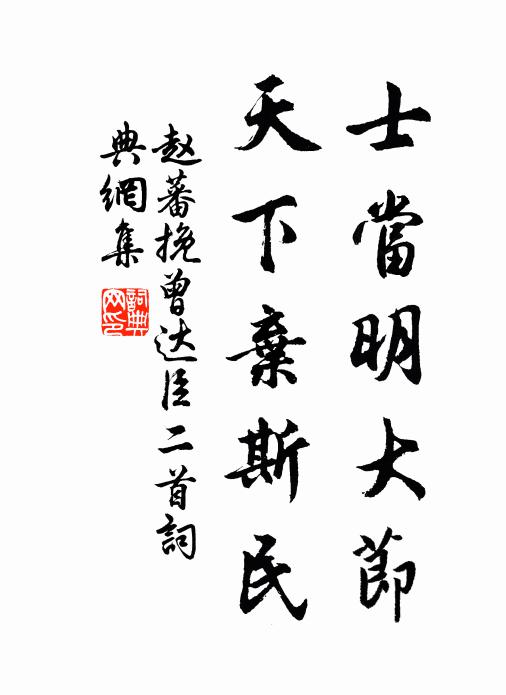 士當明大節
天下棄斯民
赵蕃挽曾达臣二首詞
典網集
詞典
网印